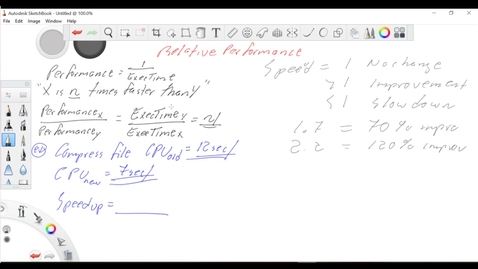 Autodesk SketchBook - Untitled @ 100.0%
File Edit Image Window Help
Relative Performance
Performance = 1 / ExecTime
"X is n times faster than Y"
Performance x / Performance y = ExecTime y / ExecTime x = n
ex Compress file CPU old = 12 sec
CPU new = 7 sec
Speedup =
Speed = 1 No change
>1 Improvement
<1 Slow down
1.7 = 70% impro
2.2 = 120% improv